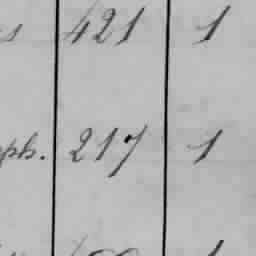 421 1
ph. 217 1